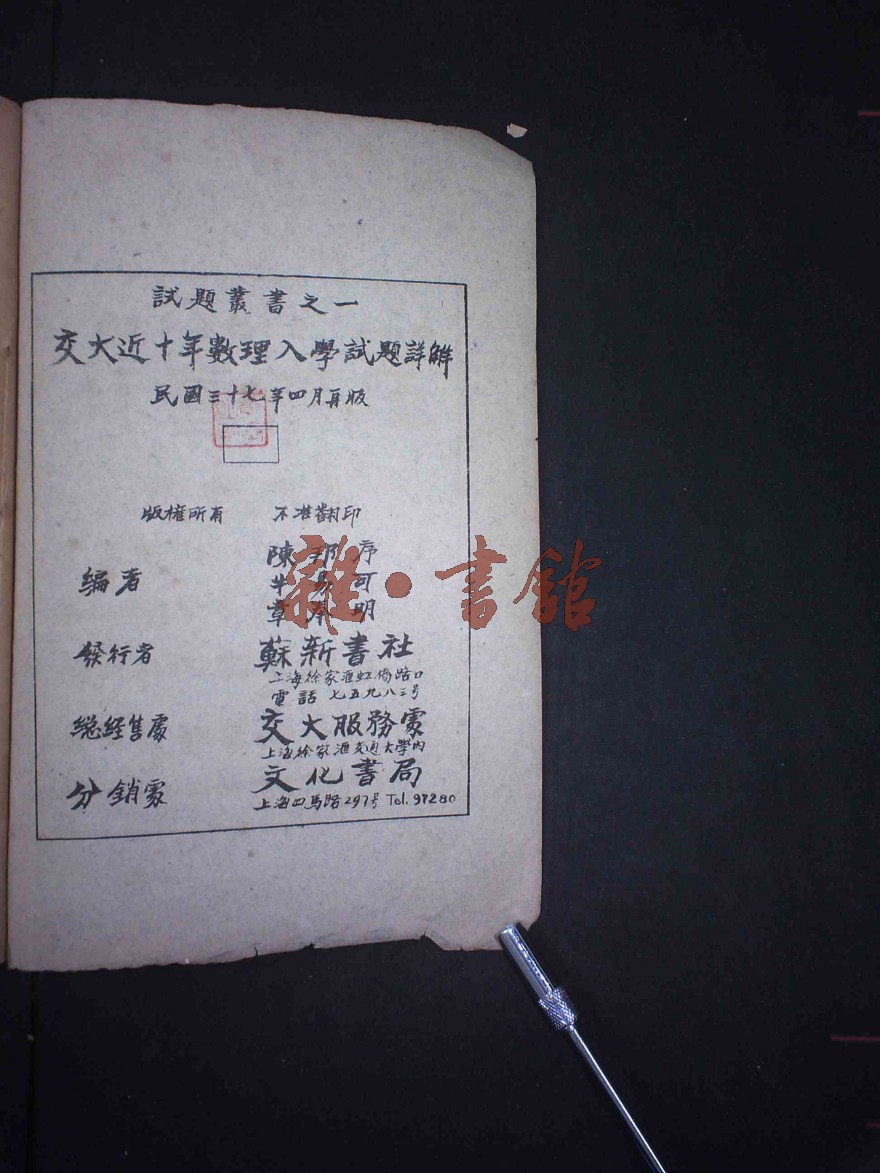 試題叢書之一
交大近十年數理入學試題詳解
民國三十七年四月再版
版權所有 不准翻印
編者
陳邦序
牛易可
章 明
發行者 蘇新書社
上海徐家滙虹橋路口
電話 七五九八三号
總經售處 交大服務處
上海徐家滙交通大學內
分銷處 文化書局
上海四馬路297号 Tel. 97280
雜·書館